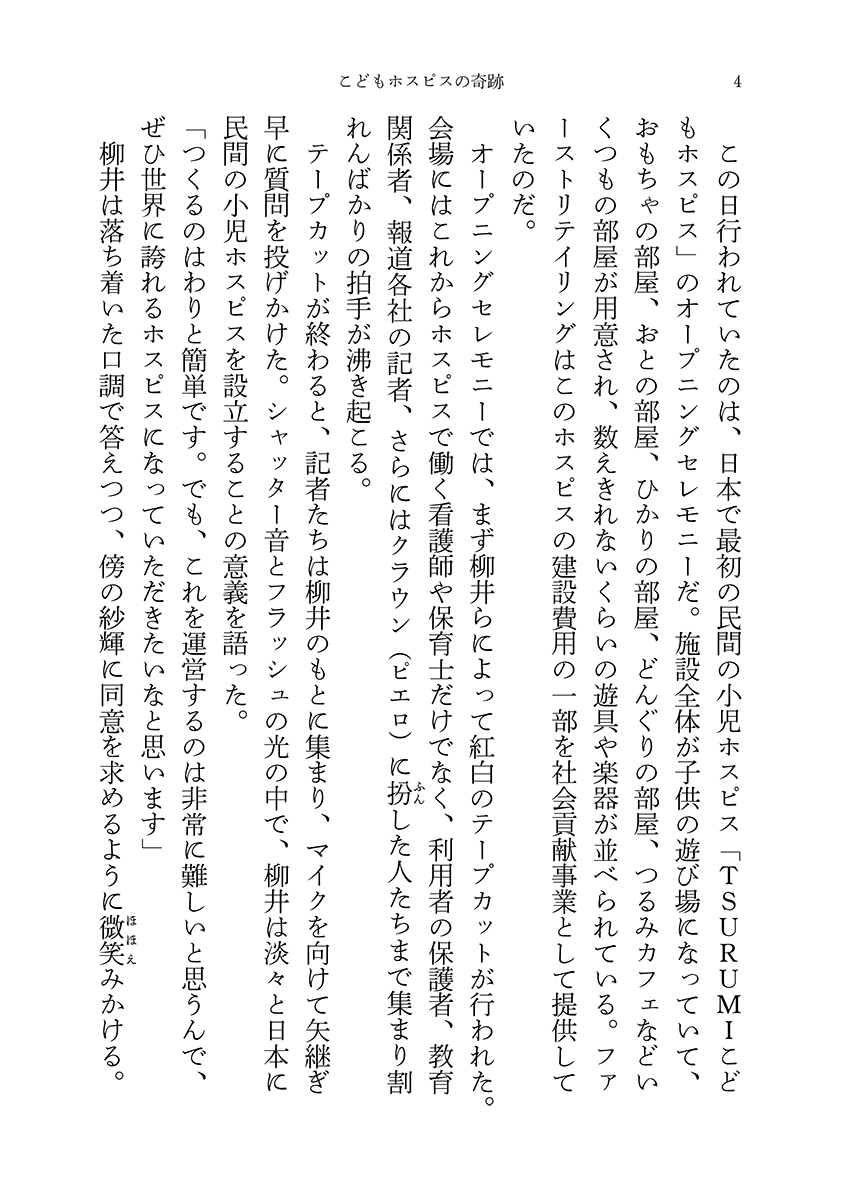 こどもホスピスの奇跡
4
この日行われていたのは、日本で最初の民間の小児ホスピス「ＴＳＵＲＵＭＩこど
もホスピス」のオープニングセレモニーだ。施設全体が子供の遊び場になっていて、
おもちゃの部屋、おとの部屋、ひかりの部屋、どんぐりの部屋、つるみカフェなどい
くつもの部屋が用意され、数えきれないくらいの遊具や楽器が並べられている。ファ
ーストリテイリングはこのホスピスの建設費用の一部を社会貢献事業として提供して
いたのだ。
オープニングセレモニーでは、まず柳井らによって紅白のテープカットが行われた。
会場にはこれからホスピスで働く看護師や保育士だけでなく、利用者の保護者、教育
関係者、報道各社の記者、さらにはクラウン（ピエロ）に扮ふんした人たちまで集まり割
れんばかりの拍手が沸き起こる。
テープカットが終わると、記者たちは柳井のもとに集まり、マイクを向けて矢継ぎ
早に質問を投げかけた。シャッター音とフラッシュの光の中で、柳井は淡々と日本に
民間の小児ホスピスを設立することの意義を語った。
「つくるのはわりと簡単です。でも、これを運営するのは非常に難しいと思うんで、
ぜひ世界に誇れるホスピスになっていただきたいなと思います」
柳井は落ち着いた口調で答えつつ、傍の紗輝に同意を求めるように微笑ほほえみかける。